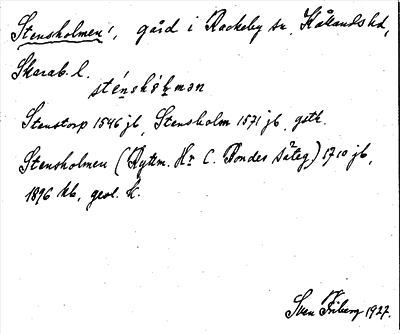 Stensholmen, gård i Rackeby sn, Kållands hd,
Skarab. l.
sténshòlmən
Stenstorp 1546 jb, Stensholm 1571 jb, gstr.
Stensholmen (Ryttm. Hr C. Bondes säteg.) 1710 jb,
1896 kb, geol. k.
Sven Friberg 1927.